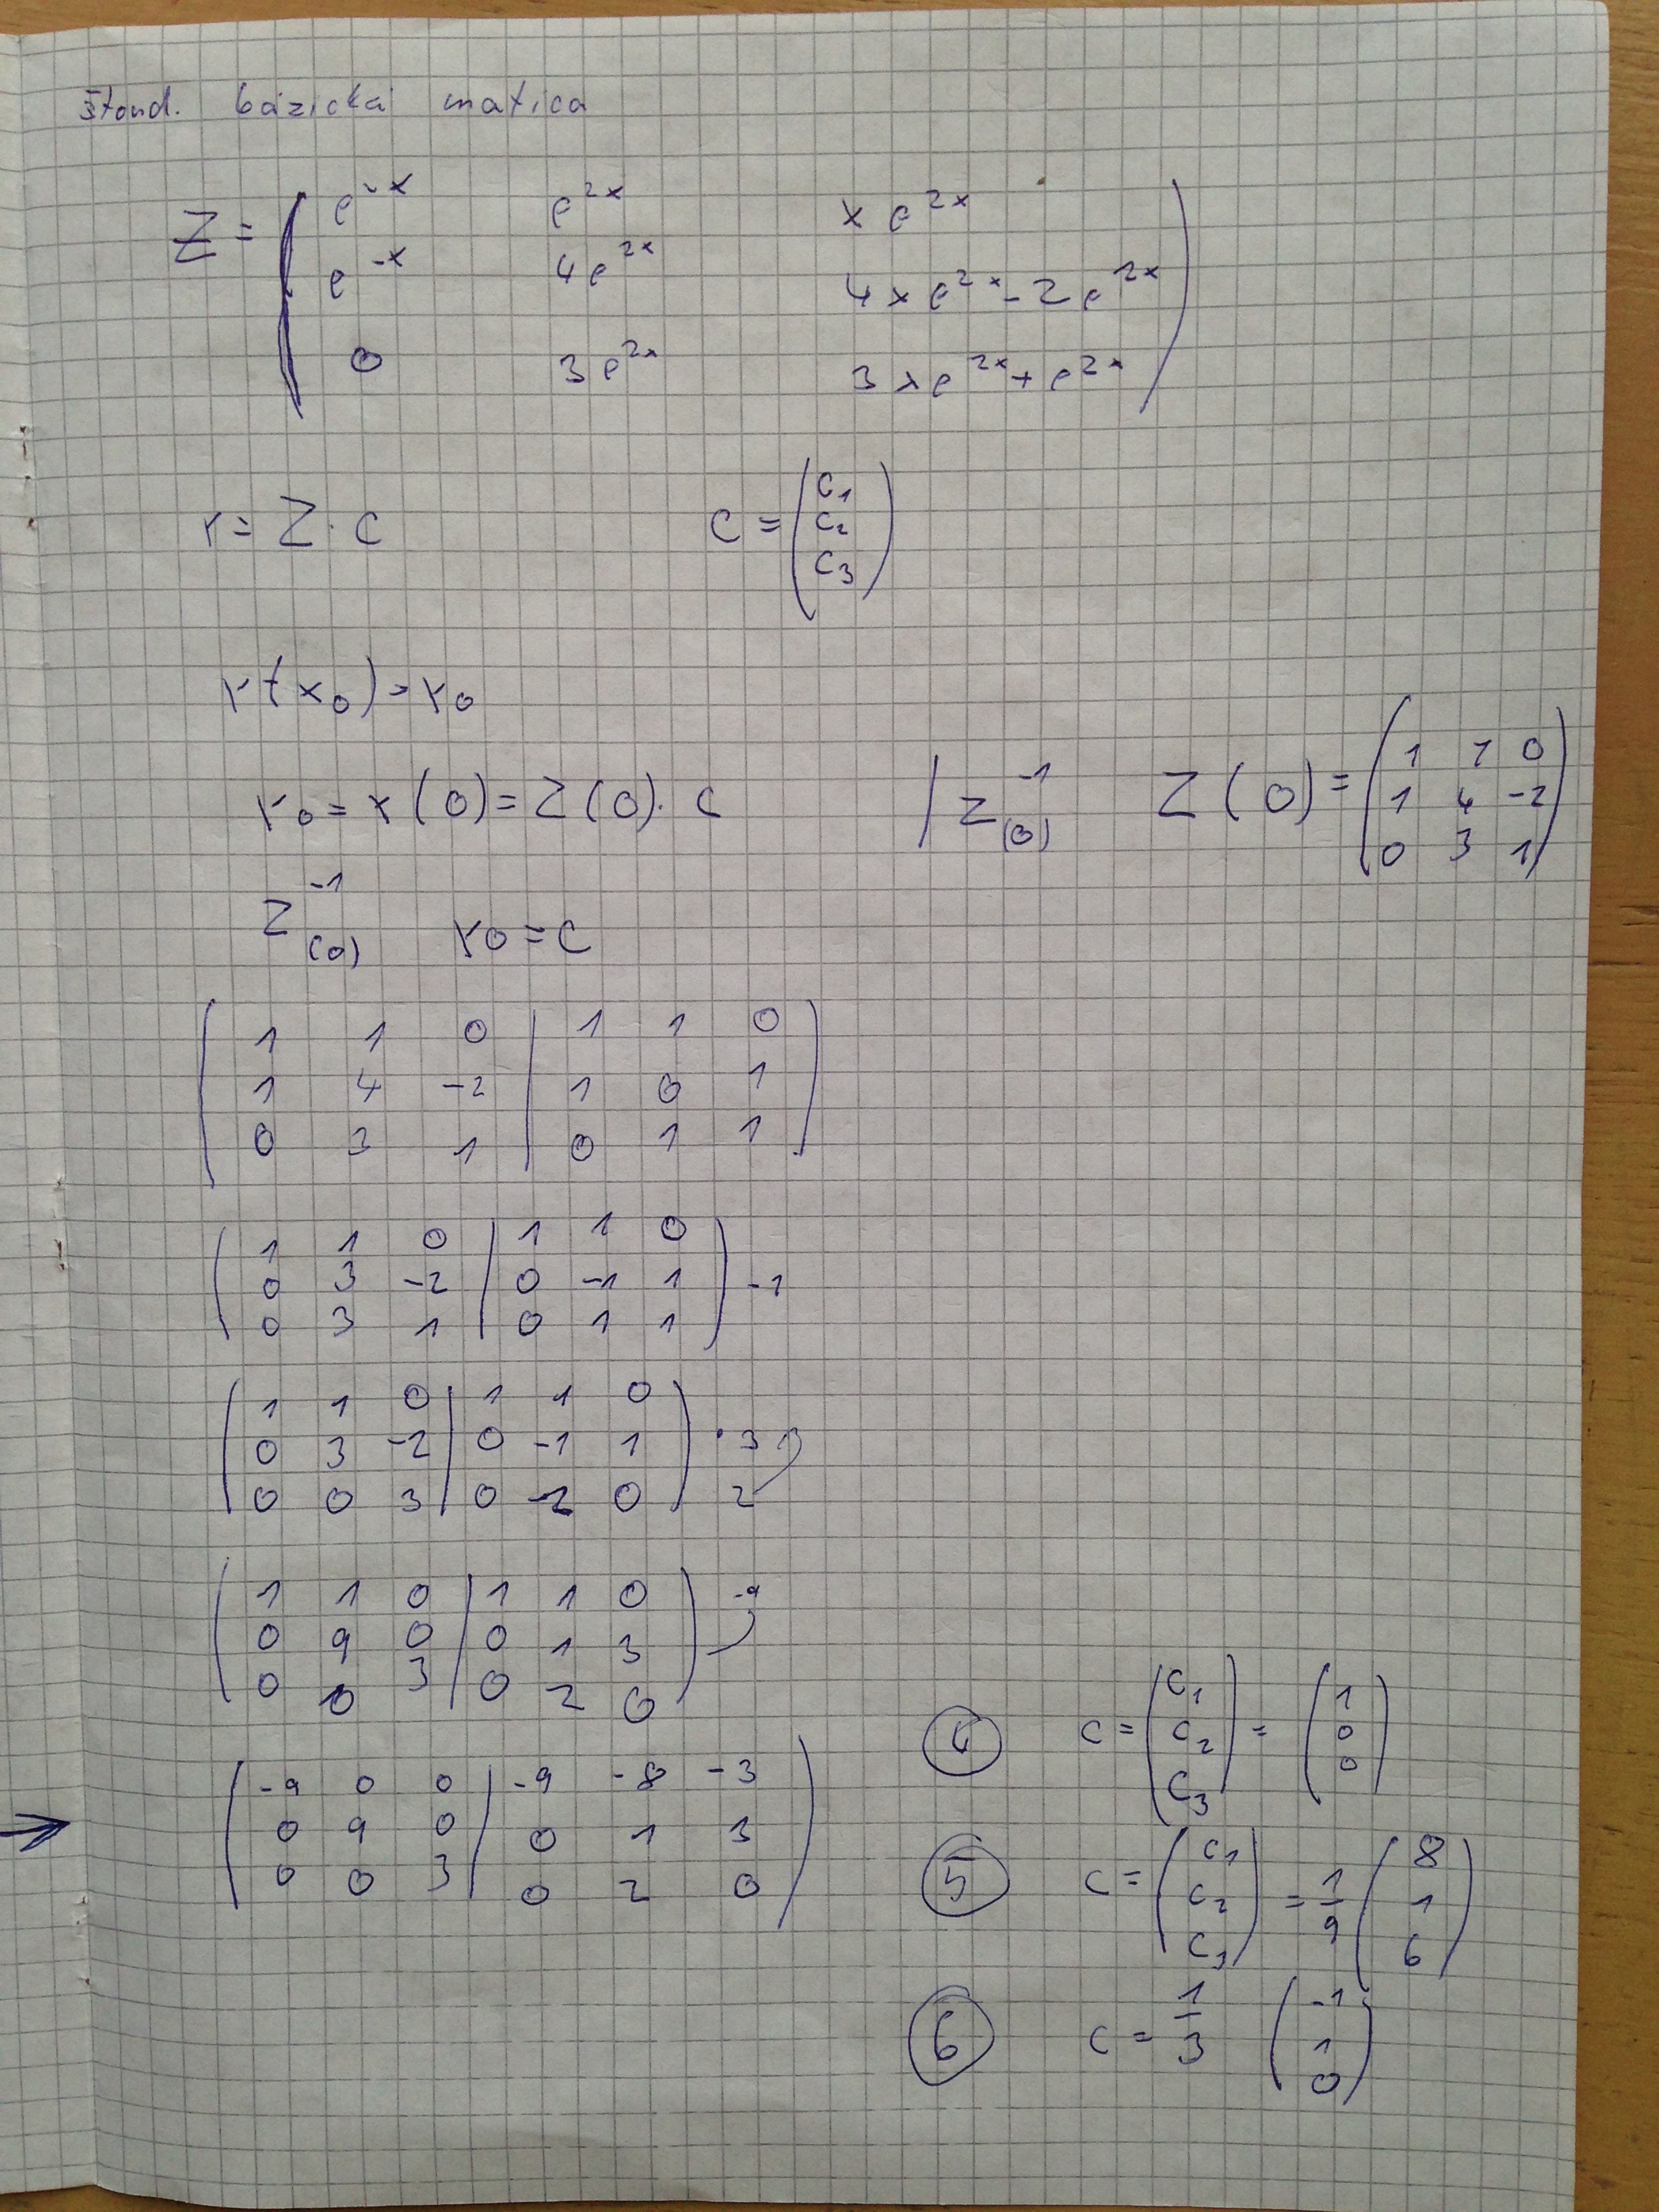 štand. bázická matica
Z = ( e^-x e^2x x e^2x
e^-x 4e^2x 4xe^2x - 2e^2x
0 3e^2x 3xe^2x + e^2x )
r = Z · C C = ( c1
c2
c3 )
r(x0) = r0
r0 = r(0) = Z(0) · C / Z^-1(0) Z(0) = ( 1 1 0
1 4 -2
0 3 1 )
Z^-1(0) r0 = C
( 1 1 0 | 1 1 0
1 4 -2 | 1 0 1
0 3 1 | 0 1 1 )
( 1 1 0 | 1 1 0
0 3 -2 | 0 -1 1
0 3 1 | 0 1 1 ) -1
( 1 1 0 | 1 1 0
0 3 -2 | 0 -1 1
0 0 3 | 0 -2 0 ) · 3
2
( 1 1 0 | 1 1 0 ) -9
0 9 0 | 0 1 3
0 0 3 | 0 2 0 )
→ ( -9 0 0 | -9 -8 -3
0 9 0 | 0 1 3
0 0 3 | 0 2 0 )
④ C = ( c1
c2
c3 ) = ( 1
0
0 )
⑤ C = ( c1
c2
c3 ) = 1/9 ( 8
1
6 )
⑥ C = 1/3 ( -1
1
0 )